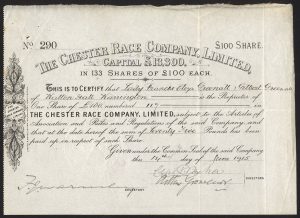 No 290
£100 SHARE.
THE CHESTER RACE COMPANY, LIMITED,
CAPITAL £13,300.
IN 133 SHARES OF £100 EACH.
This is to Certify that Lady Frances
of Walton Hall Warrington is the Proprietor of
One Share of £100 numbered 119 in
THE CHESTER RACE COMPANY, LIMITED, subject to the Articles of
Association and Rules and Regulations of the said Company, and
that at the date hereof the sum of Pounds has been
paid up in respect of such Share.
Given under the Common Seal of the said Company
this 14th day of June 1915
DIRECTORS
SECRETARY